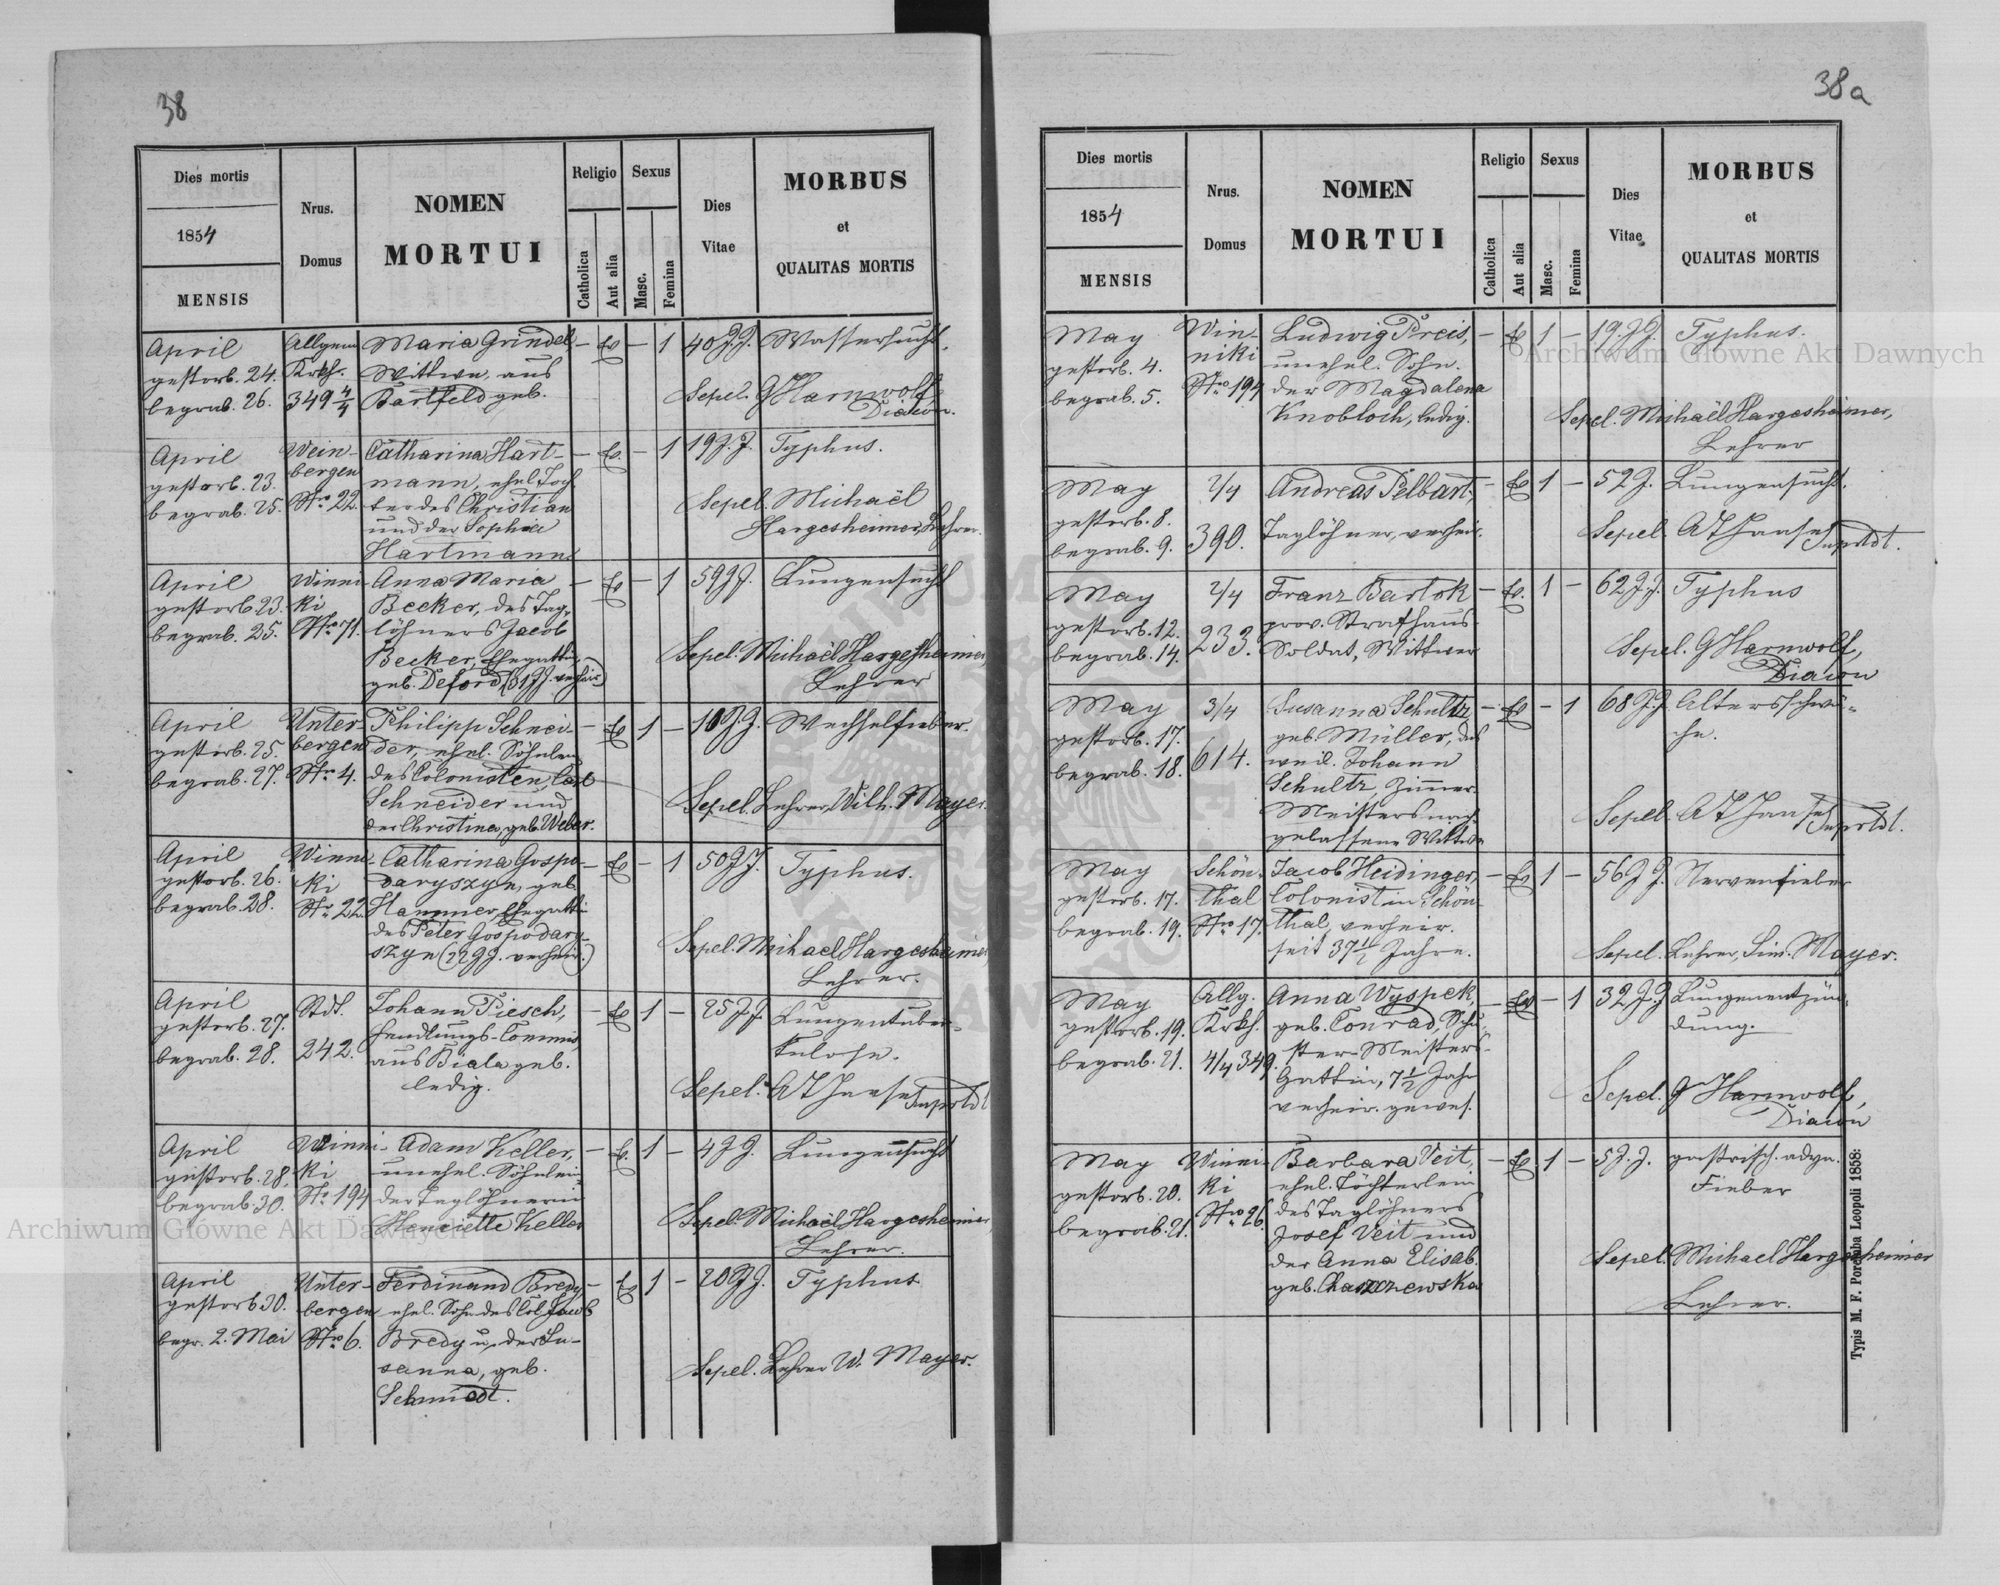 38
Dies mortis
1854
MENSIS
Nrus.
Domus
NOMEN
MORTUI
Religio
Catholica
Aut alia
Sexus
Masc.
Femina
Dies
Vitae
MORBUS
et
QUALITAS MORTIS
April
gestorb. 24.
begrab. 26.
Allgem.
Krkh.
349 4/4
Maria Grindel,
Wittwe, aus
Bartfeld geb.
— Ev — 1
40 J.J.
Wassersucht.
Sepel. G Harnwolf,
Diacon.
April
gestorb. 23.
begrab. 25.
Wein-
bergen
Nro 22.
Catharina Hart-
mann, ehel. Toch
ter des Christian
und der Sophia
Hartmann
— Ev. — 1
19 J. J.
Typhus.
Sepel. Michaël
Hargesheimer, Lehrer.
April
gestorb. 23.
begrab. 25.
Winni
ki
Nro 71.
Anna Maria
Becker, des Tag-
löhners Jacob
Becker, Ehegattin
geb. Deford (31 JJ. verheir.)
— Ev — 1
59 JJ.
Lungensucht
Sepel. Michaël Hargesheimer,
Lehrer
April
gestorb. 25.
begrab. 27.
Unter-
bergen
Nro 4.
Philipp Schnei-
der, ehel. Söhnlein
des Colonisten Carl
Schneider und
der Christina, geb. Weber.
— Ev 1 —
10 J.J.
Wechselfieber.
Sepel. Lehrer, Wilh. Mayer.
April
gestorb. 26.
begrab. 28.
Winni-
ki
Nr. 22.
Catharina Gospo-
daryszyn, geb.
Hammer, Ehegattin
des Peter Gospodary-
szyn (22 JJ. verheir.)
— Ev — 1
50 JJ.
Typhus.
Sepel. Michael Hargesheimer,
Lehrer.
April
gestorb. 27.
begrab. 28.
Stdt.
242.
Johann Piesch,
Handlungs-Commis,
aus Biala geb.
ledig.
— Ev 1 —
25 JJ.
Lungentuber-
kulose.
Sepel. A T Haase Suprtdt
April
gestorb. 28.
begrab. 30.
Winni-
ki
Nro 194
Adam Keller,
unehel. Söhnlein
der Taglöhnerin
Henriette Keller
— Ev. 1 —
4 JJ.
Lungensucht
Sepel. Michaël Hargesheimer,
Lehrer.
April
gestorb 30.
begr. 2. Mai
Unter-
bergen
Nro 6.
Ferdinand Bredy
ehel. Sohn des Col. Jacob
Bredy u. der Su-
sanna, geb.
Schmidt.
— Ev 1 —
20 JJ.
Typhus
Sepel. Lehrer W. Mayer.
38a
Dies mortis
1854
MENSIS
Nrus.
Domus
NOMEN
MORTUI
Religio
Catholica
Aut alia
Sexus
Masc.
Femina
Dies
Vitae
MORBUS
et
QUALITAS MORTIS
May
gestorb. 4.
begrab. 5.
Win-
niki
Nro 194
Ludwig Preis,
unehel. Sohn.
der Magdalena
Knobloch, ledig.
— Ev 1 —
19. JJ.
Typhus.
Sepel. Michaël Hargesheimer,
Lehrer
May
gestorb. 8.
begrab. 9.
2/4
390.
Andreas Pelbart,
Taglöhner, verheir.
— Ev 1 —
52 J.
Lungensucht.
Sepel. A T Haase Suprtdt.
May
gestorb. 12.
begrab. 14.
2/4
233.
Franz Bartok
prov. Strafhaus-
Soldat, Wittwer
— Ev. 1 —
62 J.J.
Typhus
Sepel. G Harnwolf,
Diacon
May
gestorb. 17.
begrab. 18.
3/4
614.
Susanna Schultz
geb. Müller, des
weil. Johann
Schultz, Zimmer-
Meisters nach-
gelassene Wittwe
— Ev — 1
68 JJ.
Altersschwä-
che.
Sepel. A T Haase Suprtdt.
May
gestorb. 17.
begrab. 19.
Schön-
thal
Nro 17.
Jacob Heidinger,
Colonist in Schön-
thal, verheir.
seit 37 1/2 Jahre.
— Ev 1 —
56 JJ.
Nervenfieber
Sepel. Lehrer, Sim. Mayer.
May
gestorb. 19.
begrab. 21.
Allg.
Krkh.
4/4 349.
Anna Wyspek,
geb. Conrad, Schu-
ster-Meisters-
Gattin, 7 1/2 Jahr
verheir. gewes.
— Ev — 1
32 J.J
Lungenentzün-
dung.
Sepel. G Harnwolf,
Diacon
May
gestorb. 20.
begrab. 21.
Winni-
ki
Nro 26.
Barbara Veit,
ehel. Töchterlein
des Taglöhners
Josef Veit und
der Anna Elisab.
geb. Charzewska
— Ev. 1 —
5 J. J.
gastrisch. adyn.
Fieber
Sepel. Michael Hargesheimer
Lehrer.
Typis M. F. Poremba Leopoli 1858:
Archiwum Główne Akt Dawnych
Archiwum Główne Akt Dawnych